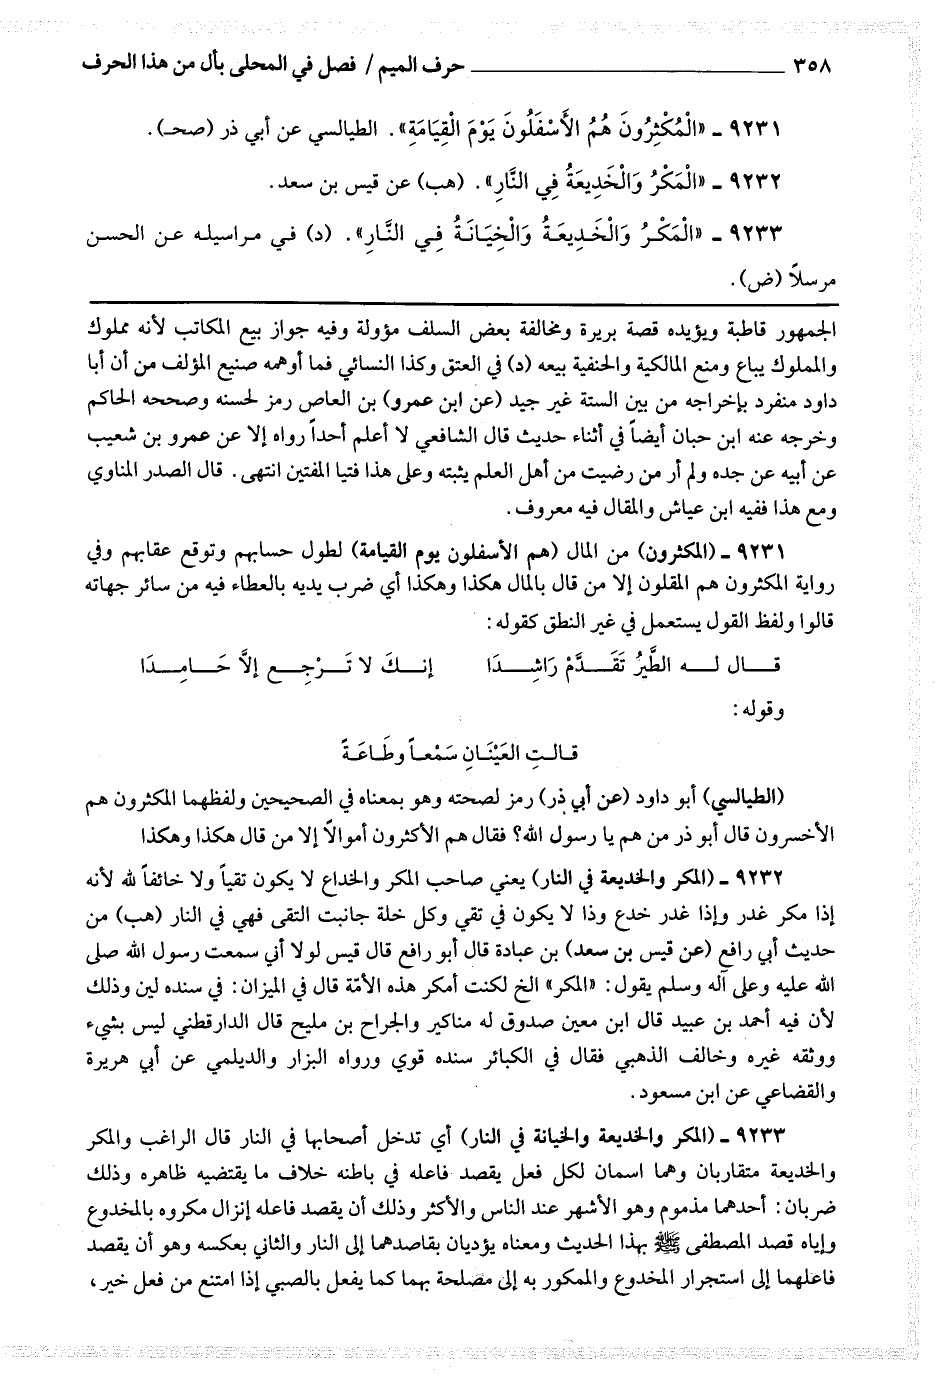 ٣٥٨ ــــــــــــــــــــــــــــ حرف الميم / فصل في المحلى بأل من هذا الحرف
٩٢٣١ ـ «الْمُكْثِرُونَ هُمُ الأَسْفَلُونَ يَوْمَ الْقِيَامَةِ». الطيالسي عن أبي ذر (صحـ).
٩٢٣٢ ـ «الْمَكْرُ وَالْخَدِيعَةُ فِي النَّارِ». (هب) عن قيس بن سعد.
٩٢٣٣ ـ «الْمَكْرُ وَالْخَدِيعَةُ وَالْخِيَانَةُ فِي النَّارِ». (د) في مراسيله عن الحسن
مرسلاً (ض).
الجمهور قاطبة ويؤيده قصة بريرة ومخالفة بعض السلف مؤولة وفيه جواز بيع المكاتب لأنه مملوك
والمملوك يباع ومنع المالكية والحنفية بيعه (د) في العتق وكذا النسائي فما أوهمه صنيع المؤلف من أن أبا
داود منفرد بإخراجه من بين الستة غير جيد (عن ابن عمرو) بن العاص رمز لحسنه وصححه الحاكم
وخرجه عنه ابن حبان أيضاً في أثناء حديث قال الشافعي لا أعلم أحداً رواه إلا عن عمرو بن شعيب
عن أبيه عن جده ولم أر من رضيت من أهل العلم يثبته وعلى هذا فتيا المفتين انتهى. قال الصدر المناوي
ومع هذا ففيه ابن عياش والمقال فيه معروف.
٩٢٣١ ـ (المكثرون) من المال (هم الأسفلون يوم القيامة) لطول حسابهم وتوقع عقابهم وفي
رواية المكثرون هم المقلون إلا من قال بالمال هكذا وهكذا أي ضرب يديه بالعطاء فيه من سائر جهاته
قالوا ولفظ القول يستعمل في غير النطق كقوله:
قــال لــه الطَّيرُ تَقَدَّمْ رَاشِدَا إنـكَ لا تَـرْجِـع إلاَّ حَـامِـدَا
وقوله:
قـالتِ العَيْنَـانِ سَمْعـاً وطَـاعَـةً
(الطيالسي) أبو داود (عن أبي ذر) رمز لصحته وهو بمعناه في الصحيحين ولفظهما المكثرون هم
الأخسرون قال أبو ذر من هم يا رسول الله؟ فقال هم الأكثرون أموالاً إلا من قال هكذا وهكذا
٩٢٣٢ ـ (المكر والخديعة في النار) يعني صاحب المكر والخداع لا يكون تقياً ولا خائفاً لله لأنه
إذا مكر غدر وإذا غدر خدع وذا لا يكون في تقي وكل خلة جانبت التقى فهي في النار (هب) من
حديث أبي رافع (عن قيس بن سعد) بن عبادة قال أبو رافع قال قيس لولا أني سمعت رسول الله صلى
الله عليه وعلى آله وسلم يقول: «المكر» الخ لكنت أمكر هذه الأمّة قال في الميزان: في سنده لين وذلك
لأن فيه أحمد بن عبيد قال ابن معين صدوق له مناكير والجراح بن مليح قال الدارقطني ليس بشيء
ووثقه غيره وخالف الذهبي فقال في الكبائر سنده قوي ورواه البزار والديلمي عن أبي هريرة
والقضاعي عن ابن مسعود.
٩٢٣٣ ـ (المكر والخديعة والخيانة في النار) أي تدخل أصحابها في النار قال الراغب والمكر
والخديعة متقاربان وهما اسمان لكل فعل يقصد فاعله في باطنه خلاف ما يقتضيه ظاهره وذلك
ضربان: أحدهما مذموم وهو الأشهر عند الناس والأكثر وذلك أن يقصد فاعله إنزال مكروه بالمخدوع
وإياه قصد المصطفى ﷺ بهذا الحديث ومعناه يؤديان بقاصدهما إلى النار والثاني بعكسه وهو أن يقصد
فاعلهما إلى استجرار المخدوع والممكور به إلى مصلحة بهما كما يفعل بالصبي إذا امتنع من فعل خير،